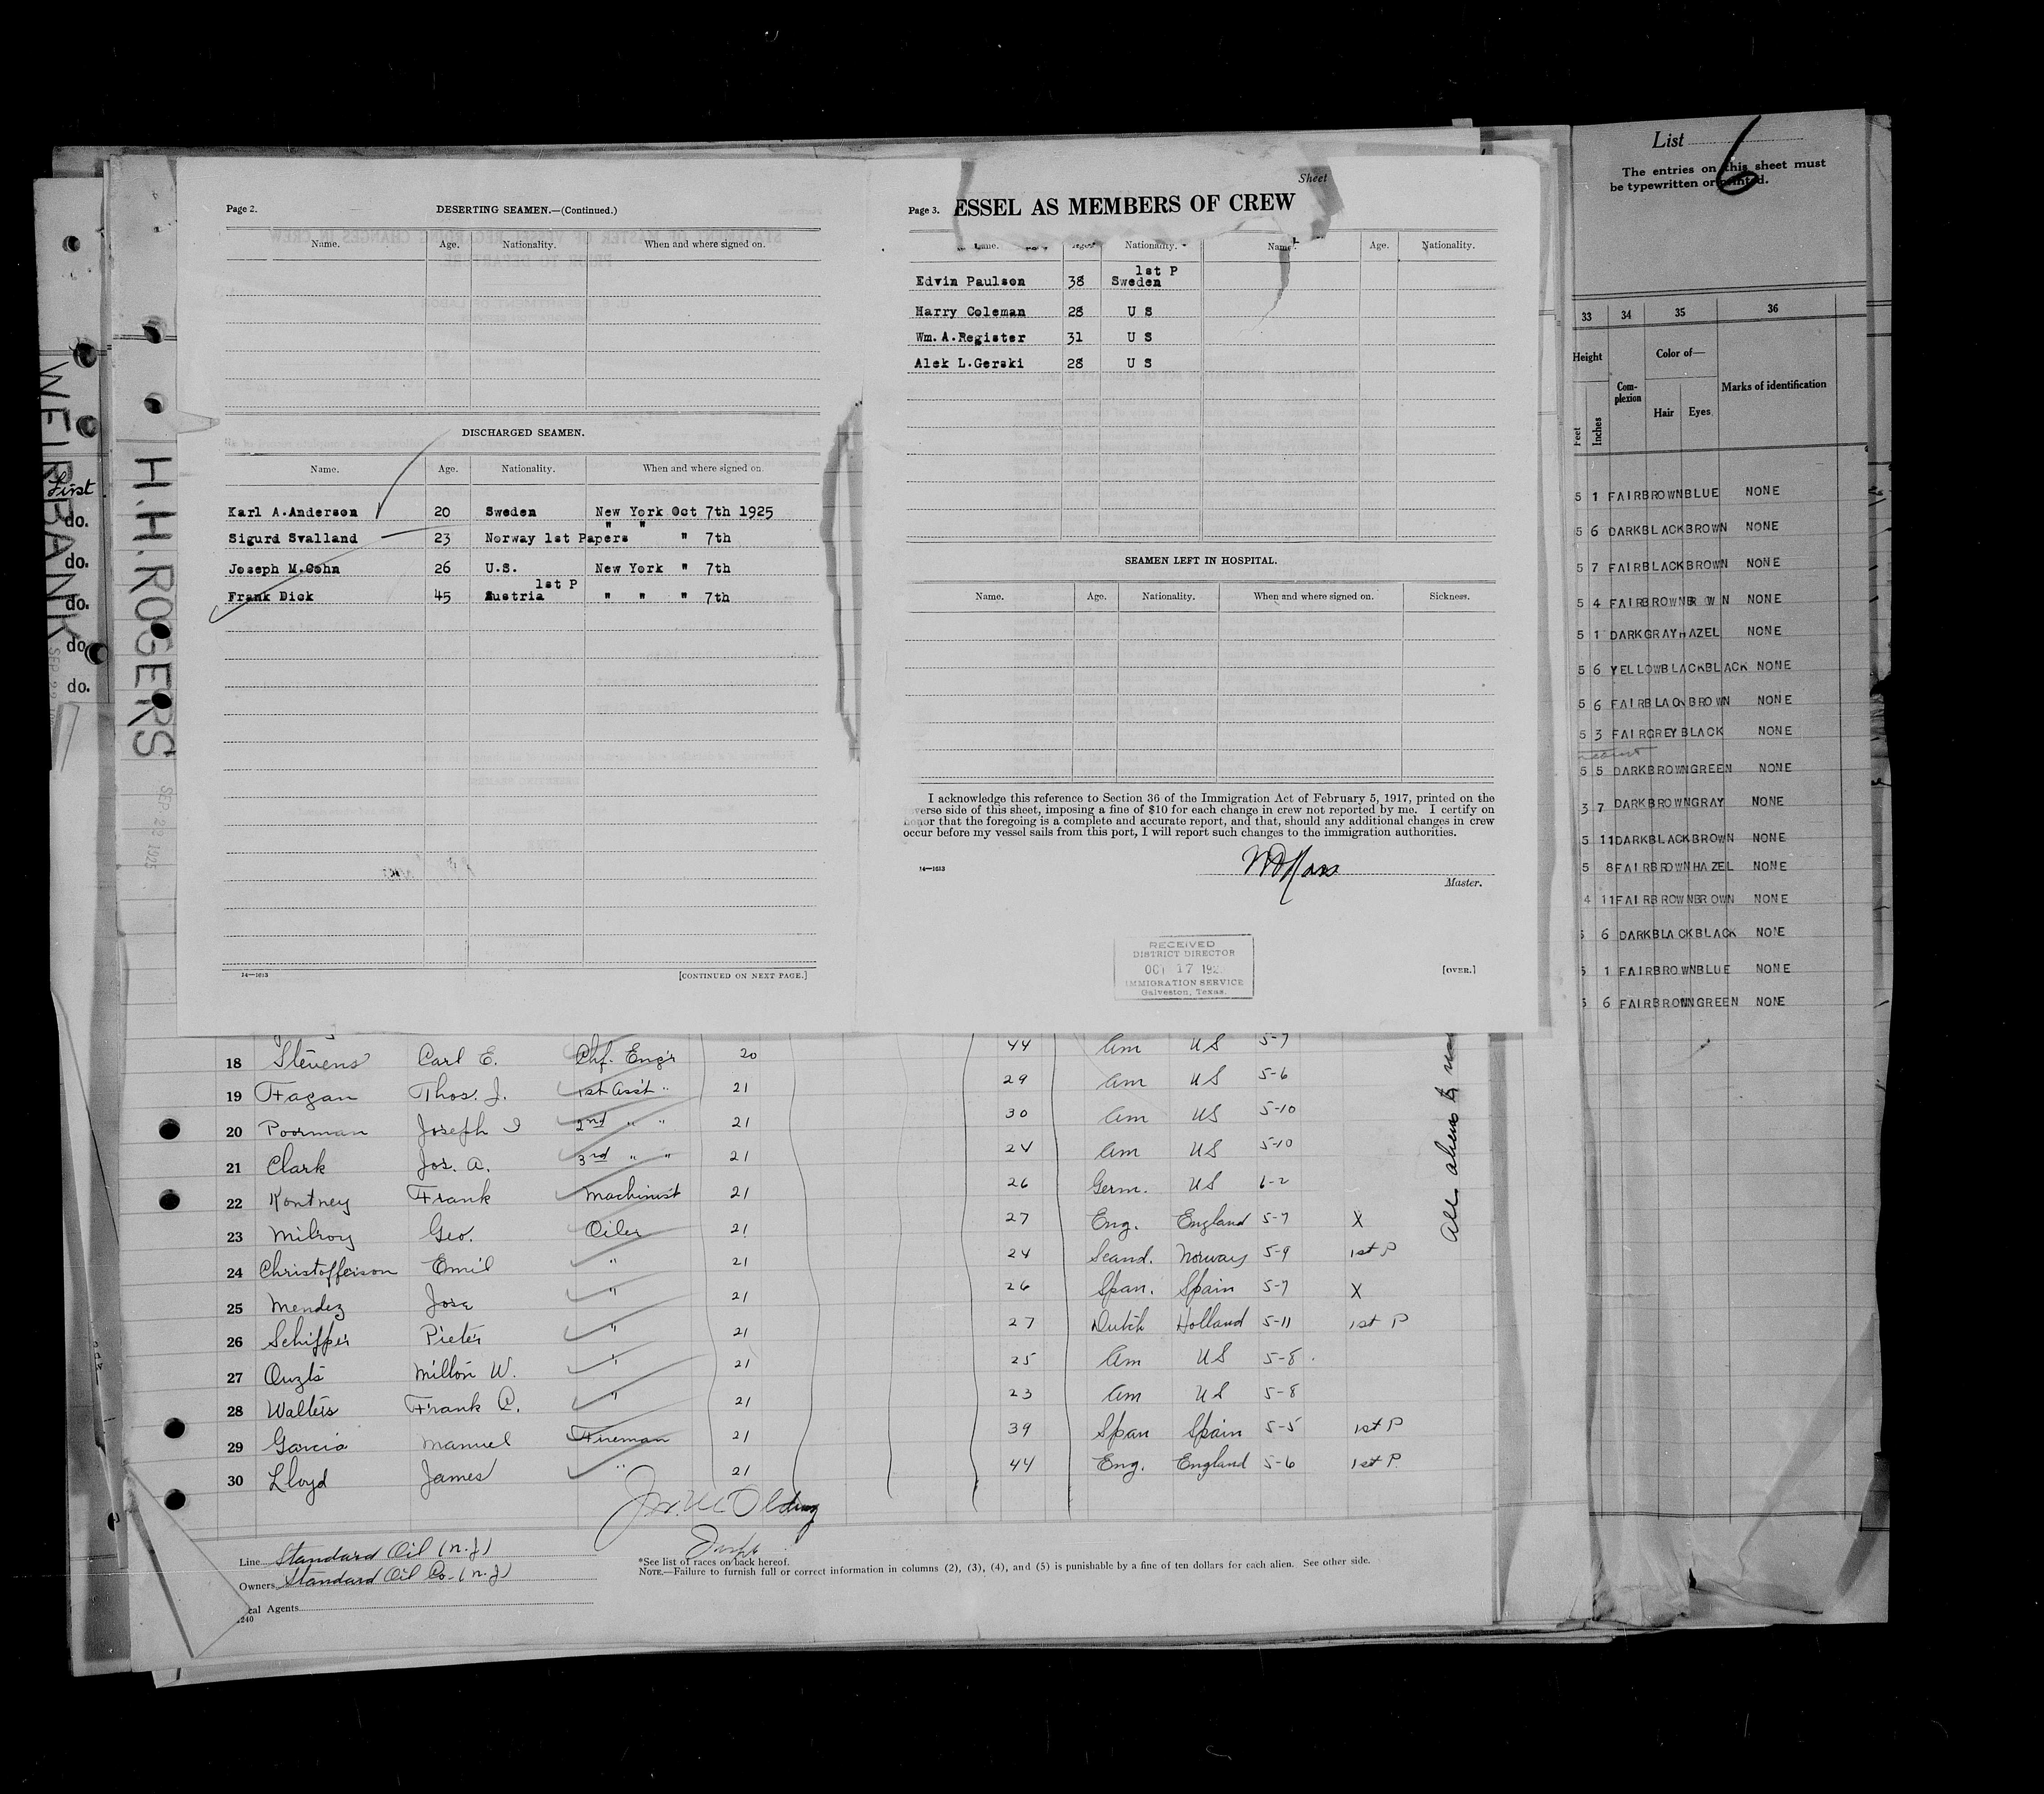 WEIRBANK
SEP 22
First
do.
do.
do.
do.
do.
H.H. ROGERS
SEP 22 1925
Page 2.
DESERTING SEAMEN.—(Continued.)
Name. Age. Nationality. When and where signed on.
DISCHARGED SEAMEN.
Name. Age. Nationality. When and where signed on.
Karl A.Anderson 20 Sweden New York Oct 7th 1925
" "
Sigurd Svalland 23 Norway 1st Papers " 7th
Joseph M.Cohn 26 U.S. New York " 7th
1st P
Frank Dick 45 Austria " " " 7th
14—1613
[CONTINUED ON NEXT PAGE.]
Sheet
Page 3. ESSEL AS MEMBERS OF CREW
Name. Nationality. Name. Age. Nationality.
1st P
Edvin Paulson 38 Sweden
Harry Coleman 28 U S
Wm.A.Register 31 U S
Alek L.Gerski 28 U S
SEAMEN LEFT IN HOSPITAL.
Name. Age. Nationality. When and where signed on. Sickness.
I acknowledge this reference to Section 36 of the Immigration Act of February 5, 1917, printed on the
verse side of this sheet, imposing a fine of $10 for each change in crew not reported by me. I certify on
honor that the foregoing is a complete and accurate report, and that, should any additional changes in crew
occur before my vessel sails from this port, I will report such changes to the immigration authorities.
14—1613
Master.
RECEIVED
DISTRICT DIRECTOR
OCT 17 192
IMMIGRATION SERVICE
Galveston, Texas.
[OVER.]
18 Stevens Carl E. Chf. Eng'r 20 44 Am US 5-7
19 Fagan Thos. J. 1st Ass't " 21 29 Am US 5-6
20 Poorman Joseph I 2nd " " 21 30 Am US 5-10
21 Clark Jos. A. 3rd " " 21 24 Am US 5-10
22 Kontney Frank Machinist 21 26 Germ. US 6-2
23 Milroy Geo. Oiler 21 27 Eng. England 5-7 X
24 Christofferson Emil " 21 24 Scand. Norway 5-9 1st P
25 Mendez Jose " 21 26 Span. Spain 5-7 X
26 Schiffer Pieter " 21 27 Dutch Holland 5-11 1st P
27 Ouzts Milton W. " 21 25 Am US 5-8
28 Walters Frank C. " 21 23 Am US 5-8
29 Garcia Manuel Fireman 21 39 Span Spain 5-5 1st P
30 Lloyd James " 21 44 Eng. England 5-6 1st P
All aliens to
Insp
Line Standard Oil (N.J)
Owners Standard Oil Co. (N.J)
cal Agents
1240
*See list of races on back hereof.
NOTE.—Failure to furnish full or correct information in columns (2), (3), (4), and (5) is punishable by a fine of ten dollars for each alien. See other side.
List 6
The entries on this sheet must
be typewritten or printed.
33 34 35 36
Height Complexion Color of— Marks of identification
Feet Inches Hair Eyes
5 1 FAIR BROWN BLUE NONE
5 6 DARK BLACK BROWN NONE
5 7 FAIR BLACK BROWN NONE
5 4 FAIR BROWN BR OWN NONE
5 1 DARK GRAY HAZEL NONE
5 6 YELLOW BLACK BLACK NONE
5 6 FAIR BLACK BROWN NONE
5 3 FAIR GREY BLACK NONE
5 5 DARK BROWN GREEN NONE
3 7 DARK BROWN GRAY NONE
5 11 DARK BLACK BROWN NONE
5 8 FAIR BROWN HAZEL NONE
4 11 FAIR BROWN BROWN NONE
5 6 DARK BLACK BLACK NONE
5 1 FAIR BROWN BLUE NONE
5 6 FAIR BROWN GREEN NONE